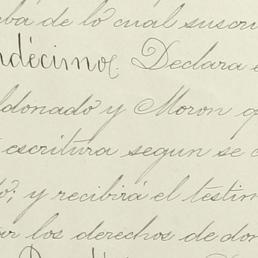 ba de lo cual suscri
ndécimo. Declara
ldonado y Moron q
escritura segun se
o; y recibirá el testim
ar los derechos de don